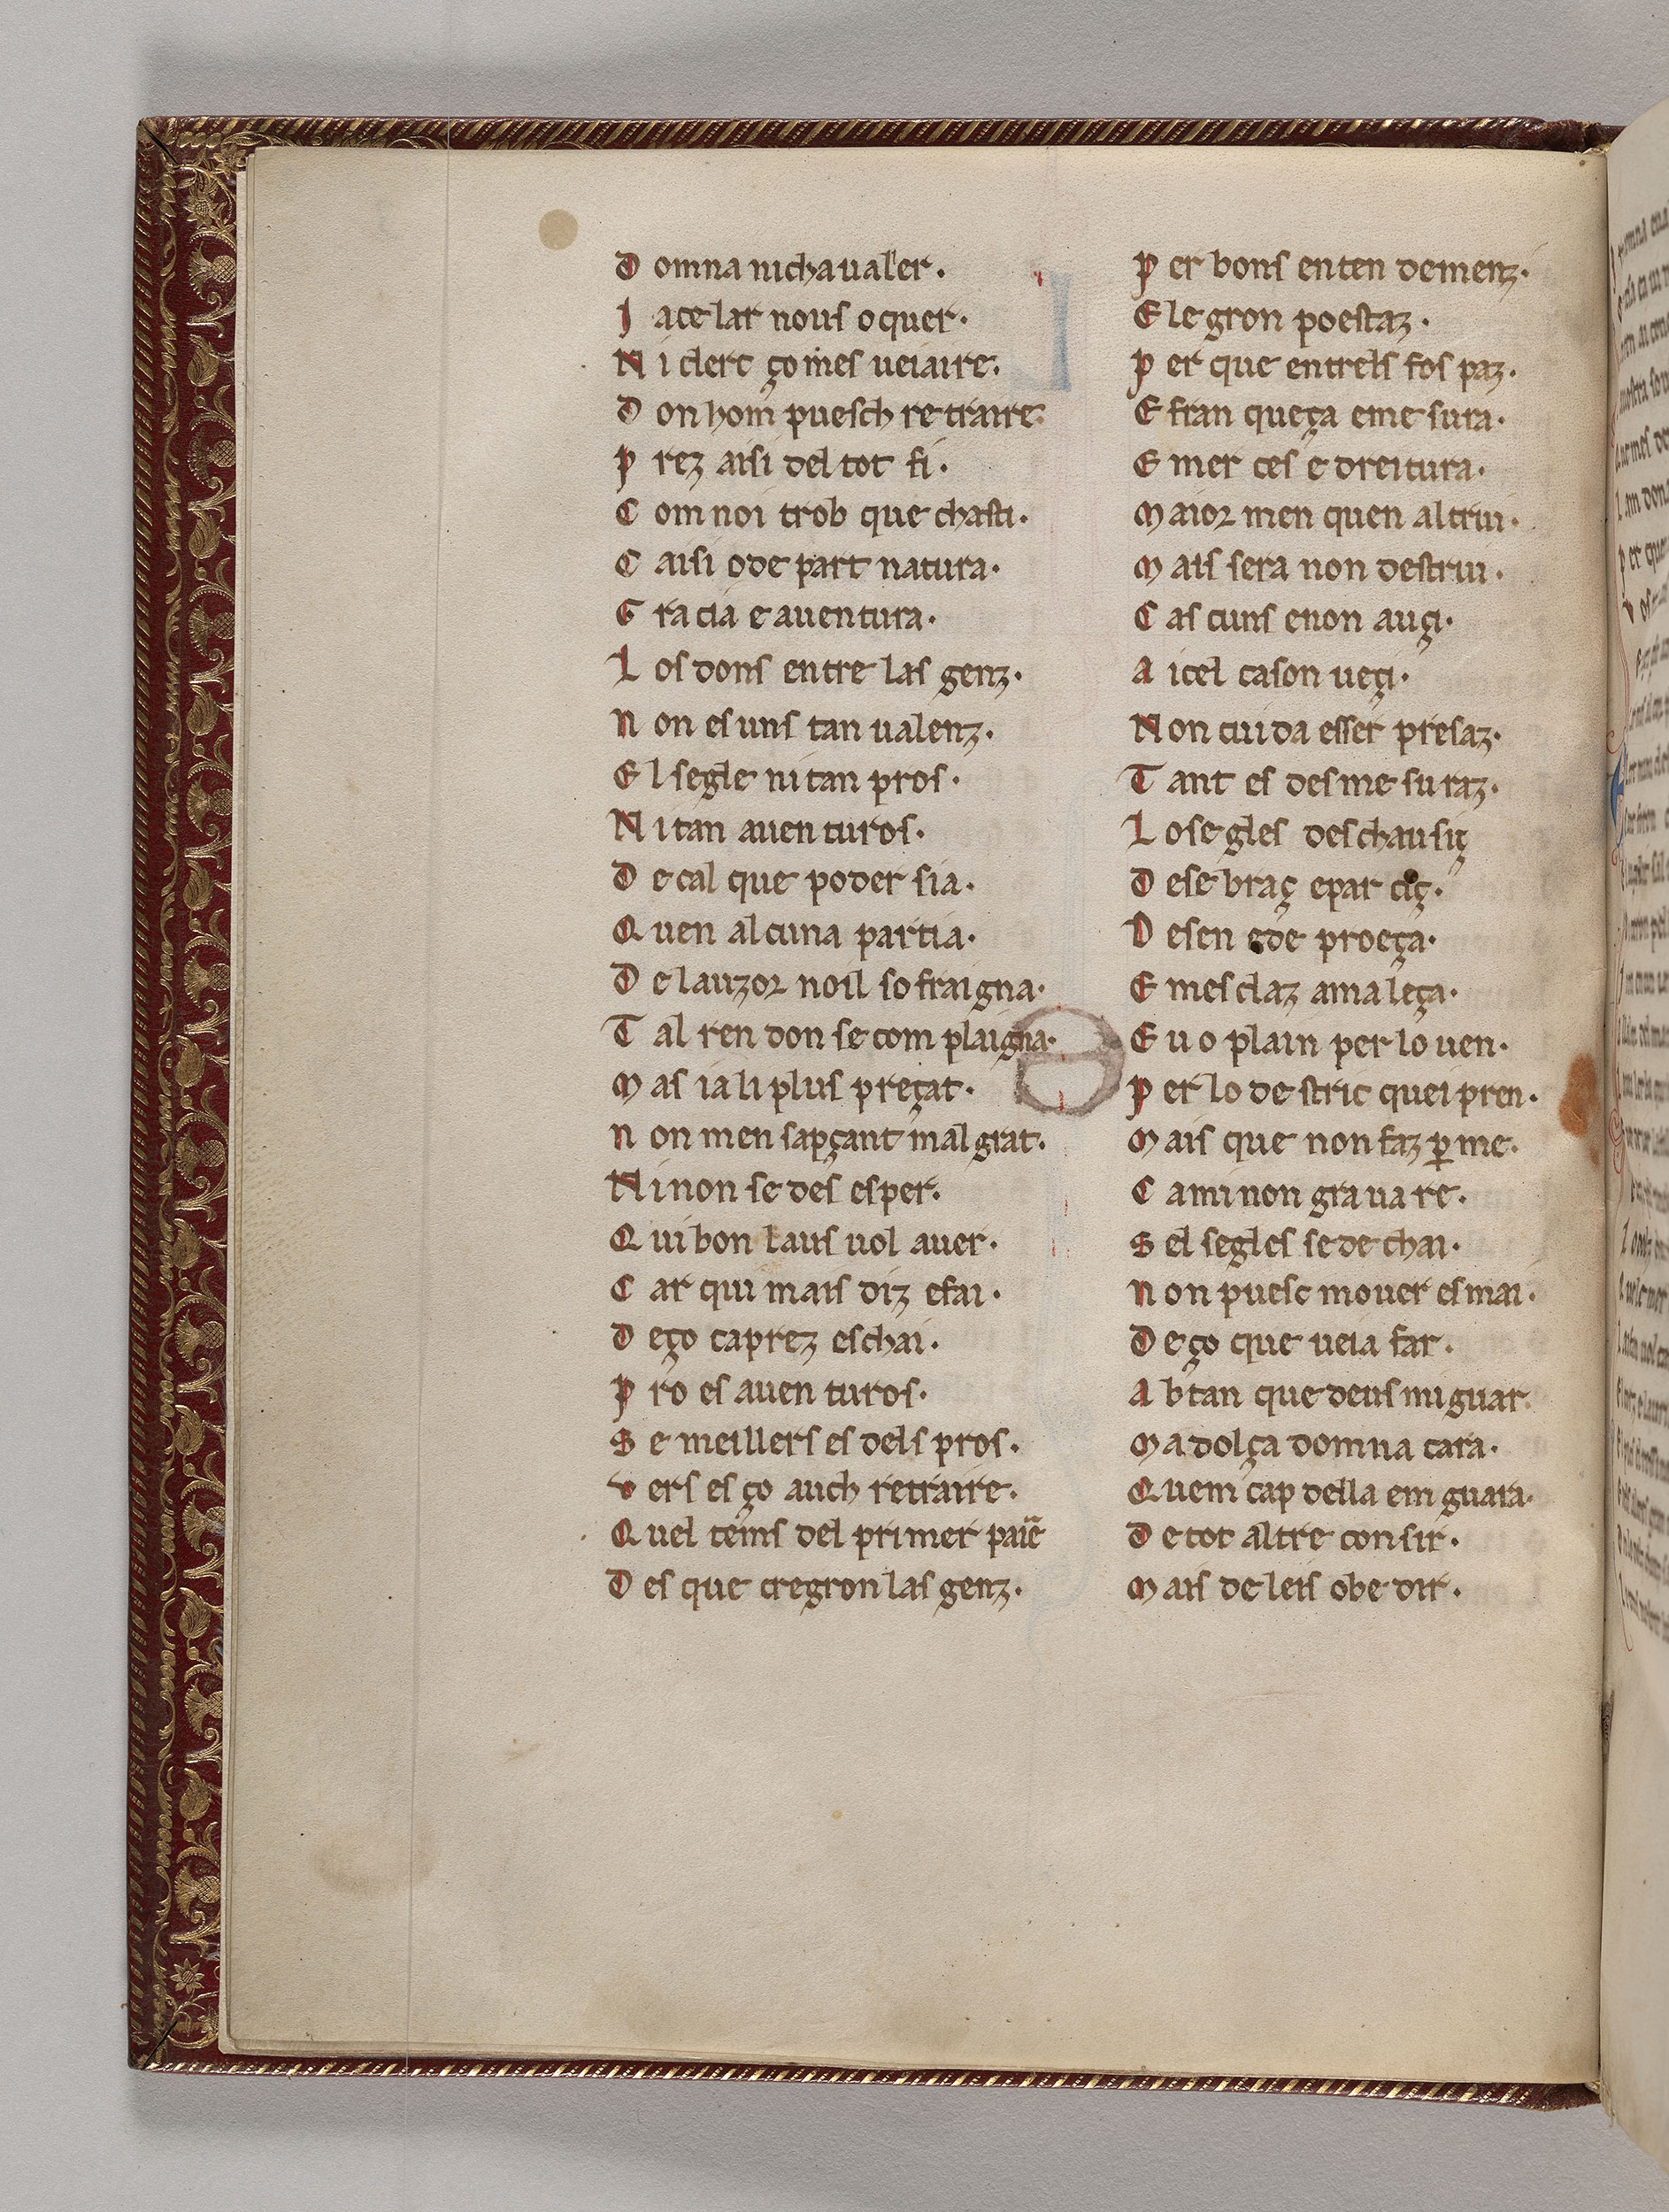 Domna ni chaualer.
Ja celar nous o quer.
Ni clerc ço mes ueiaire.
Don hom puesch retraire.
Prez aisi del tot fi.
Com noi trob que chasti.
Caisi o de part natura.
Gracia e auentura.
Los dons entre las genz.
Non es uns tan ualenz.
El segle ni tan pros.
Ni tan auenturos.
De cal que poder sia.
Quen alcuna partia.
De lauzor noil sofraigna.
Tal ren don se complaigna.
Mas ia li plus preçat.
Non men sapçant mal grat.
Ni non se des esper.
Qui bon laus uol auer.
Car qui mais diz e fai.
De ço ca prez eschai.
Pro es auenturos.
Se meillers es dels pros.
Vers es ço auch retraire.
Quel tems del primer paiē
Des que cregron las genz.
Per bons entendemenz.
E legron poestaz.
Per que entrels fos paz.
E franqueça e mesura.
E merces e dreitura.
Maior men quen altrui.
Mais sera non destrui.
Cascuns e non auçi.
Aicel cason ueçi.
Non cuida esser presaz.
Tant es desmesuraz.
Lo segles deschausiç
De se braç e parciç.
Desen ede proeça.
E mesclaz a maleça.
Eu o plain per lo uen.
Per lo destric quei pren.
Mais que non faz ꝑ me.
Cami non graua re.
Sel segles se dechai.
Non puesc mouer esmai.
De ço que ueia far.
Ab tan que deus mi guar.
Ma dolça domna cara.
Quem cap della em guara.
De tot altre consir.
Mais de leis obedir.